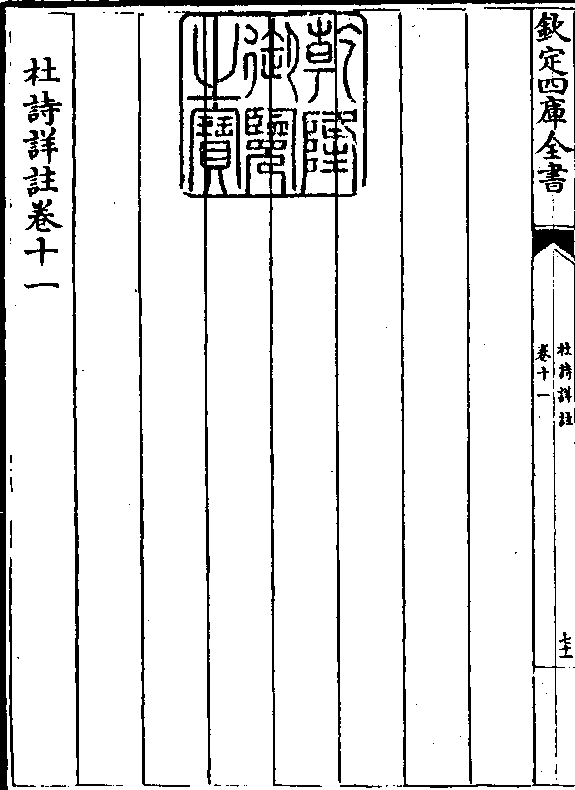 欽定四庫全書
杜詩詳註
卷十一
七十一
乾隆
御覽
之寶
杜詩詳註卷十一